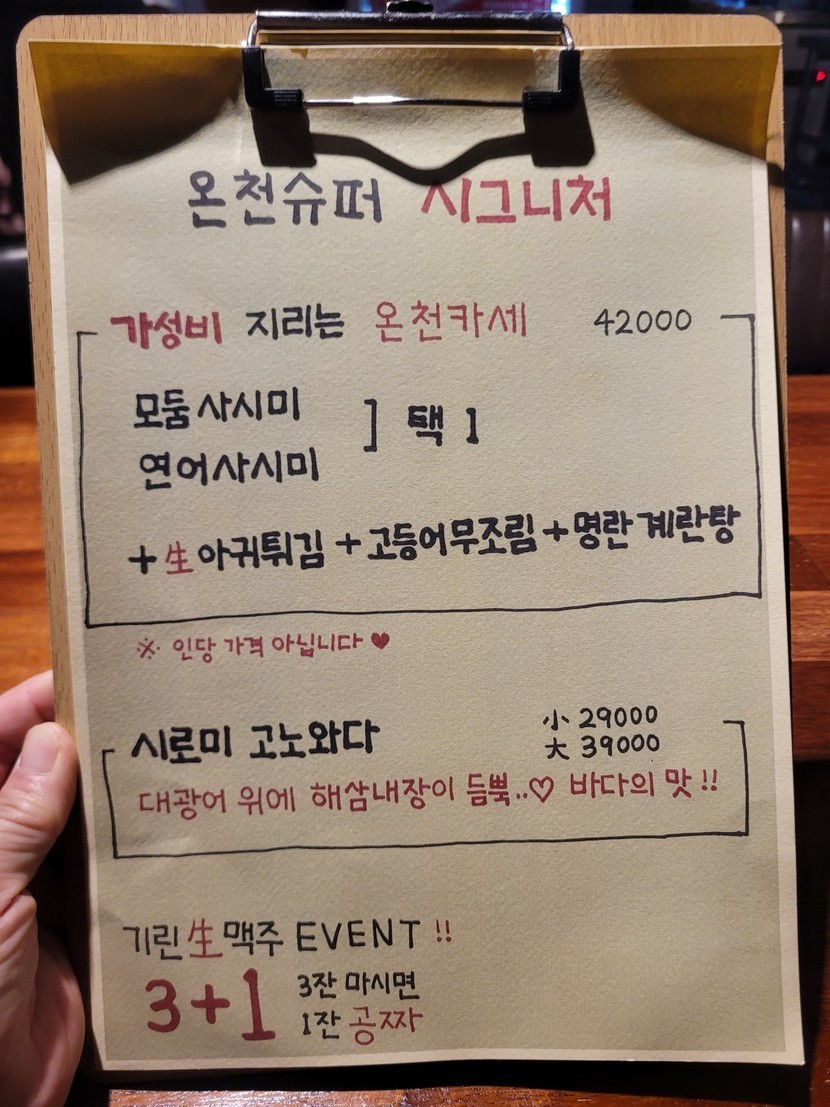 온천슈퍼 시그니처
가성비 지리는 온천카세 42000
모둠 사시미
연어사시미
] 택 1
+ 生아귀튀김 + 고등어무조림 + 명란 계란탕
※ 인당 가격 아닙니다 ♥
시로미 고노와다
小 29000
大 39000
대광어 위에 해삼내장이 듬뿍..♡ 바다의 맛 !!
기린 生 맥주 EVENT !!
3+1
3잔 마시면
1잔 공짜